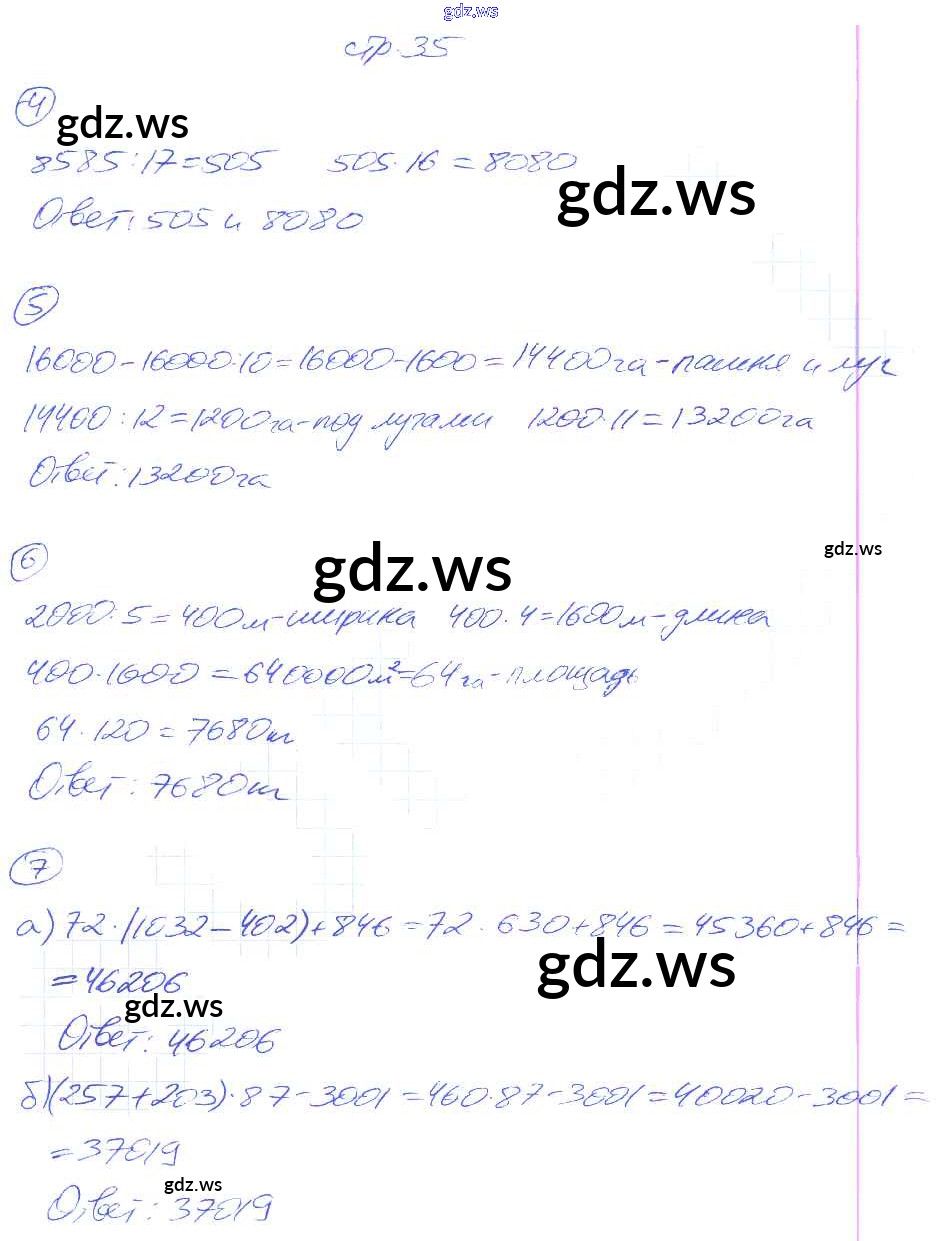 gdz.ws
стр. 35
4
gdz.ws
8585:17=505 505·16=8080
gdz.ws
Ответ: 505 и 8080
5
16000-16000:10=16000-1600=14400га-пашня и луг
14400:12=1200га-под лугами 1200·11=13200га
Ответ: 13200га
6
gdz.ws
gdz.ws
2000:5=400м-ширина 400·4=1600м-длина
400·1600=640000м²=64га-площадь
64·120=7680т
Ответ: 7680т
7
а) 72·(1032-402)+846=72·630+846=45360+846=
gdz.ws
=46206
gdz.ws
Ответ: 46206
б) (257+203)·87-3001=460·87-3001=40020-3001=
=37019
gdz.ws
Ответ: 37019